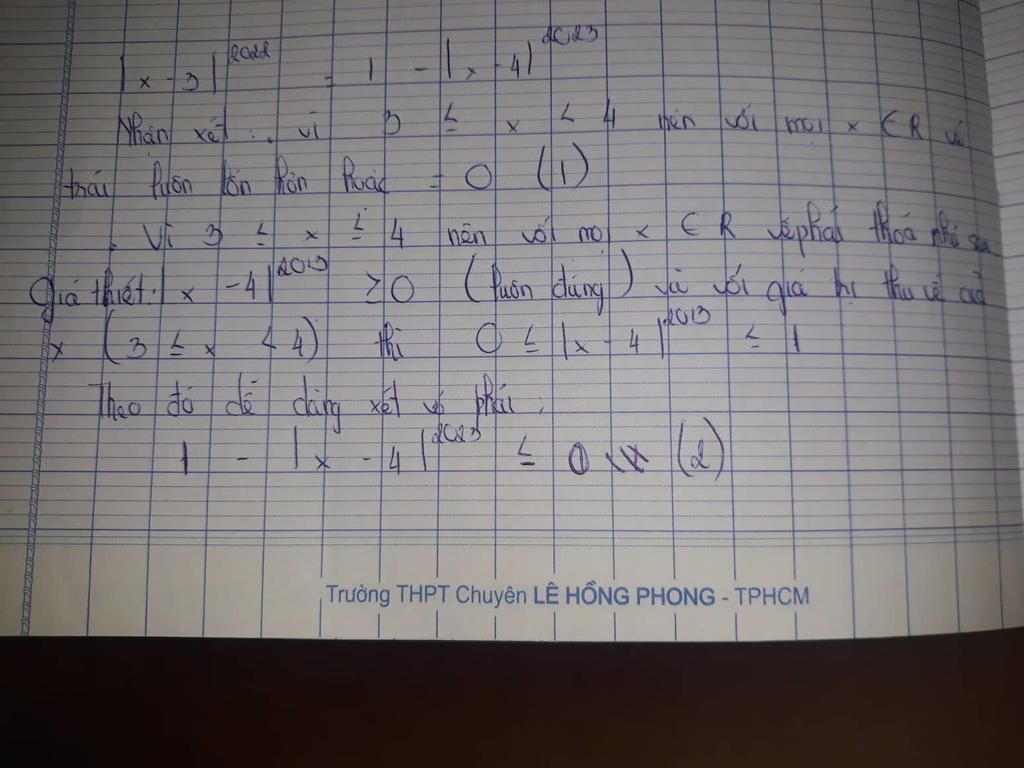 |x - 3|^2022 = 1 - |x - 4|^2023
Nhận xét: . vì 3 ≤ x < 4 nên với mọi x ∈ R vế
trái luôn lớn hơn hoặc = 0 (1)
. Vì 3 ≤ x ≤ 4 nên với mọi x ∈ R vế phải thoả
Giả thiết: |x - 4|^2013 ≥ 0 (luôn đúng) và với giá trị thu về
x (3 ≤ x < 4) thì 0 ≤ |x - 4|^2013 ≤ 1
Theo đó dễ dàng xét vế phải:
1 - |x - 4|^2023 ≤ 0 (2)
Trường THPT Chuyên LÊ HỒNG PHONG - TPHCM